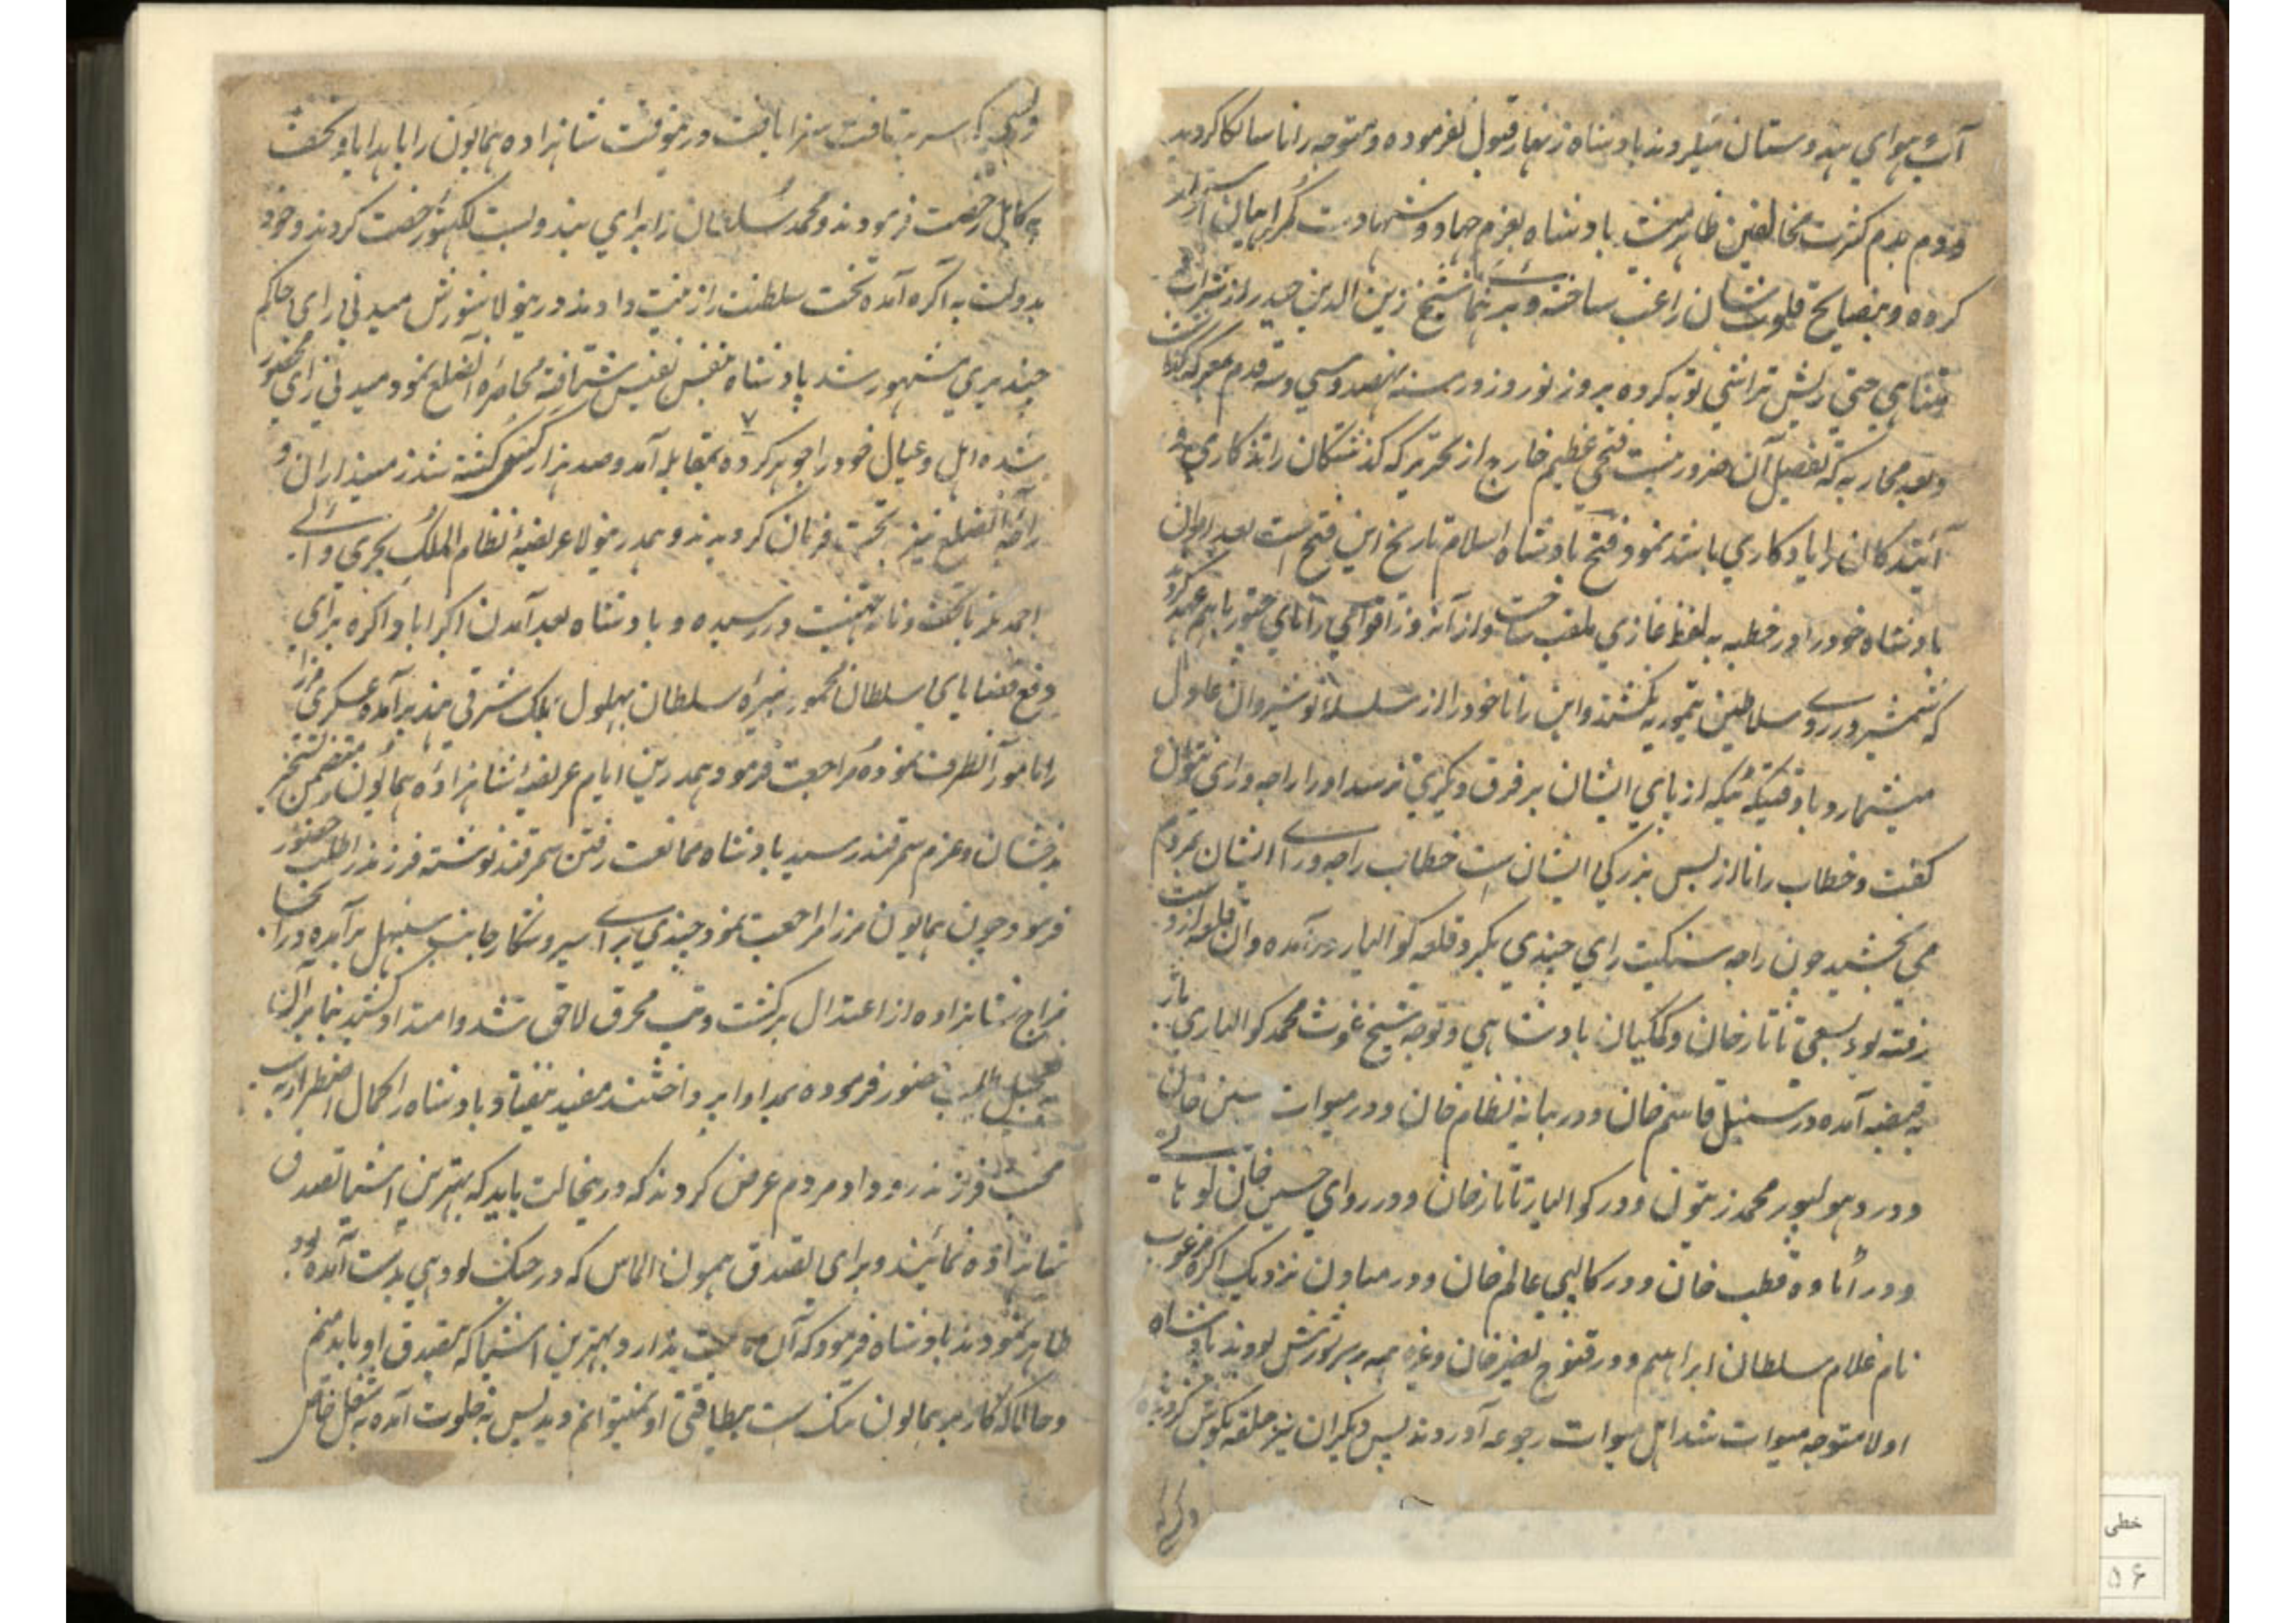 آب هواي هندوستان میلروند بادشاه زنهار قبول نفرموده و متوجه رانا سانکا کردید
و دم بدم کثرت مخالفین ظاهر میشد بادشاه بعزم جهاد و شهادت کمراهیان آراسته
کرده و بنصایح قلوب شان راغب ساخته و برهنما شیخ زین الدین حیدر از منکرات
مناهي حتي ریش تراشي توبه کرده بروز نوروز در سنه نهصد و سي و سه قدم بمعرکه
و بعد محاربه که تفصیل آن ضرور نیست فتحي عظیم خارج از تحریر که گذشتکان را تذکاري و
آیندکان را یادکاري باشد نمود فتح بادشاه اسلام تاریخ این فتح است بعد ازان
بادشاه خود را در خطبه به لفظ غازي ملقب ساخت و از آنروز اقوامي راناي چتور باهم عهد کرد
که شمشیر در روے سلاطین تیموریه نکشند و این رانا خود را از سلسله نوشیروان عادل
میشمارد تا وقتیکه تیکه از پاي ایشان بر فرق دیگري نرسد او را راجه و راي نتوان
کفت و خطاب رانا از بس بزرکي ایشان ست خطاب راجه و راے ایشان بمردم
مي بخشید چون راجه سنکیت راي چندي بکرد قلعه کوالیار درآمده و آن قلعه از دست
رفته بود بسعي تاتارخان و کمکیان بادشاهي و توجه شیخ غوث محمد کوالیاري باز
به قبضه آمده در سنبل قاسم خان و در بیانه نظام خان و در میوات حسن خان
و در دهولپور محمد زیتون و در کوالیار تاتارخان و در رواي حسین خان لوحانے
و در اتاوه قطب خان و در کالپي عالم خان و در مهاون نزدیک اکره مرغوب
نام غلام سلطان ابراهیم و در قنوج نصیرخان وغیره همه بر سر شورش بودند بادشاه
اولا متوجه میوات شد اهل میوات رجوعه آوردند پس دیکران نیز حلقه بکوش کردیده
و هرکه
و هرکه سر بتافت سزا یافت در ینوقت شاهزاده همایون را با هدایا و تحف
به کابل رخصت فرمودند و محمد سلطان را براي بندوبست لکهنور خصت کردند و خود
بدولت به آکره آمده تخت سلطنت را زینت دادند در ینولا شورش میدني راي حاکم
چندیري مشهور شد پادشاه بنفس نفیس شتافته محاصره آنقلع نمود میدني راي محصور
شده اهل و عیال خود را جوهر کرده بمقابله آمد و صد هزار کس کشته شد زمینداران و
راجه آنضلع نیز تحت فرمان کردیدند و همدرینولا عریضه نظام الملک بحري والے
احمدنکر با تحف و نادر تهنیت در رسیده و بادشاه بعد آمدن اکبراباد آکره براي
دفع قضایاي سلطان محمود نبیره سلطان بهلول بملک شرقي هند برآمده عسکري مرزا
را مامور آنطرف نموده مراجعت فرمود همدرین ایام عریضه شاهزاده همایون متضمن تسخیر
بدخشان و عزم سمرقند رسید بادشاه ممانعت رفتن سمرقند نوشته فرزند را طلب حضور
فرمود چون همایون مرزا مراجعت نمود چندي براے سیر و شکار جانب سنبهل برآمده در آنجا
مزاج شاهزاده از اعتدال برکشت و تب محرق لاحق شد و امتداد کشید بنابر آن
به تعجیل طلب حضور فرموده بمداوا پرداختند مفید نیفتاد بادشاه را کمال اضطراب به
محبت فرزند رو داد مردم عرض کردند که درینحالت باید که بهترین اشیا تصدق
شاهزاده نمائیند و براي تصدق همون الماس که در جنک لودهي بدست آمده بود
ظاهر نمودند بادشاه فرمود که آن چیست ندارد بهترین اشیا که بتصدق او باید منم
و حالاکه کار بر همایون تنک ست بیطاقتي او نمیتوانم دید پس به خلوت آمده به شغل خاص
خطی
۵۶